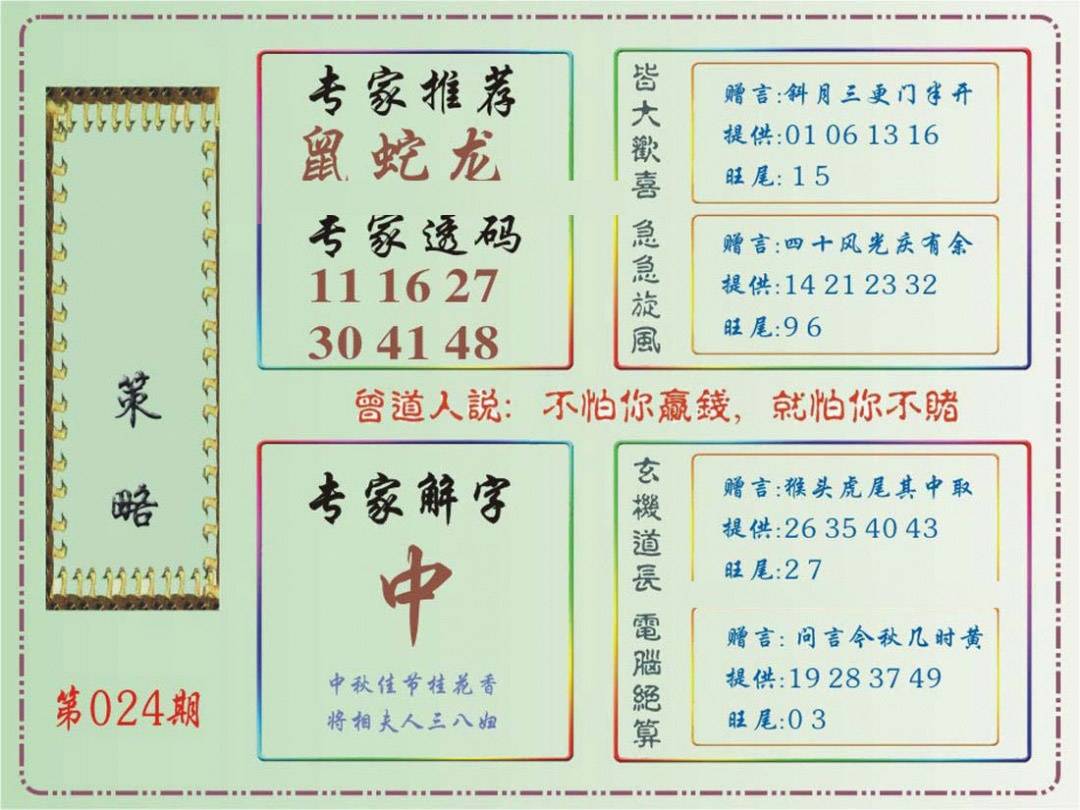 策略
第024期
专家推荐
鼠蛇龙
专家透码
11 16 27
30 41 48
皆大歡喜
赠言:斜月三更门半开
提供:01 06 13 16
旺尾: 1 5
急急旋風
赠言:四十风光庆有余
提供:14 21 23 32
旺尾:9 6
曾道人説: 不怕你贏錢, 就怕你不賭
专家解字
中
中秋佳节桂花香
将相夫人三八妞
玄機道長
赠言:猴头虎尾其中取
提供:26 35 40 43
旺尾:2 7
電腦絕算
赠言: 问言今秋几时黄
提供:19 28 37 49
旺尾:0 3